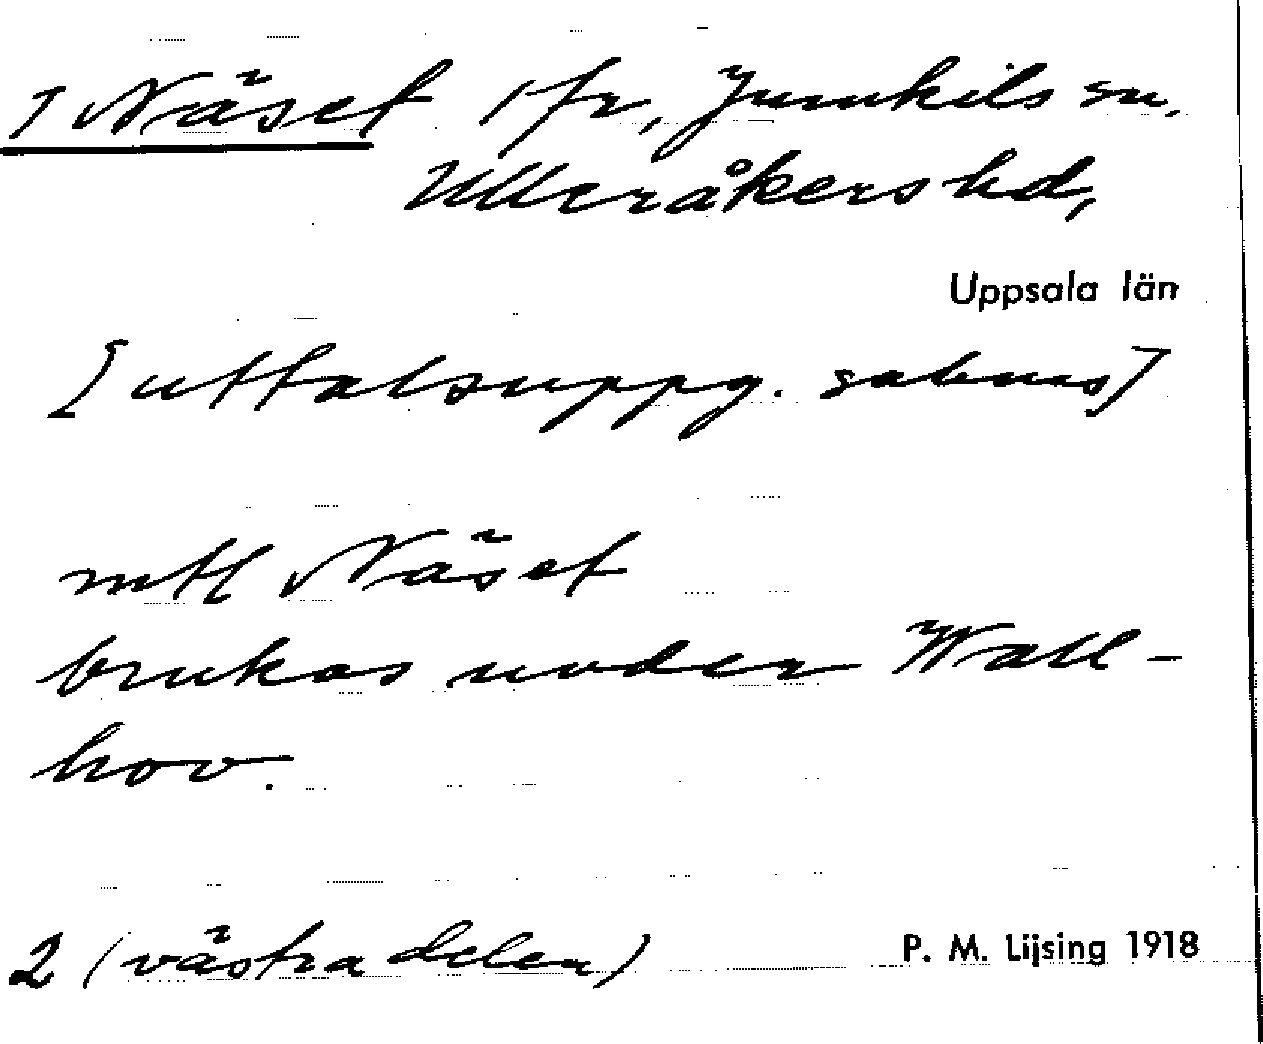 1 Näset 1 fr, Jumkils sn,
Ulleråkers hd,
Uppsala län
[uttalsuppg. saknas]
mtl Näset
brukas under Wall-
hov.
2 (västra delen) P. M. Lijsing 1918